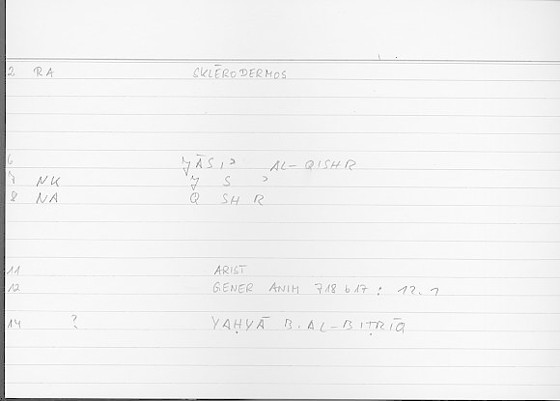 2 RA SKLĒRODERMOS
6 YĀSIʾ AL-QISHR
7 NK Y S ʾ
8 NA Q SH R
11 ARIST
12 GENER ANIM 718 b 17 : 12.1
14 ? YAḤYĀ B. AL-BIṬRĪQ